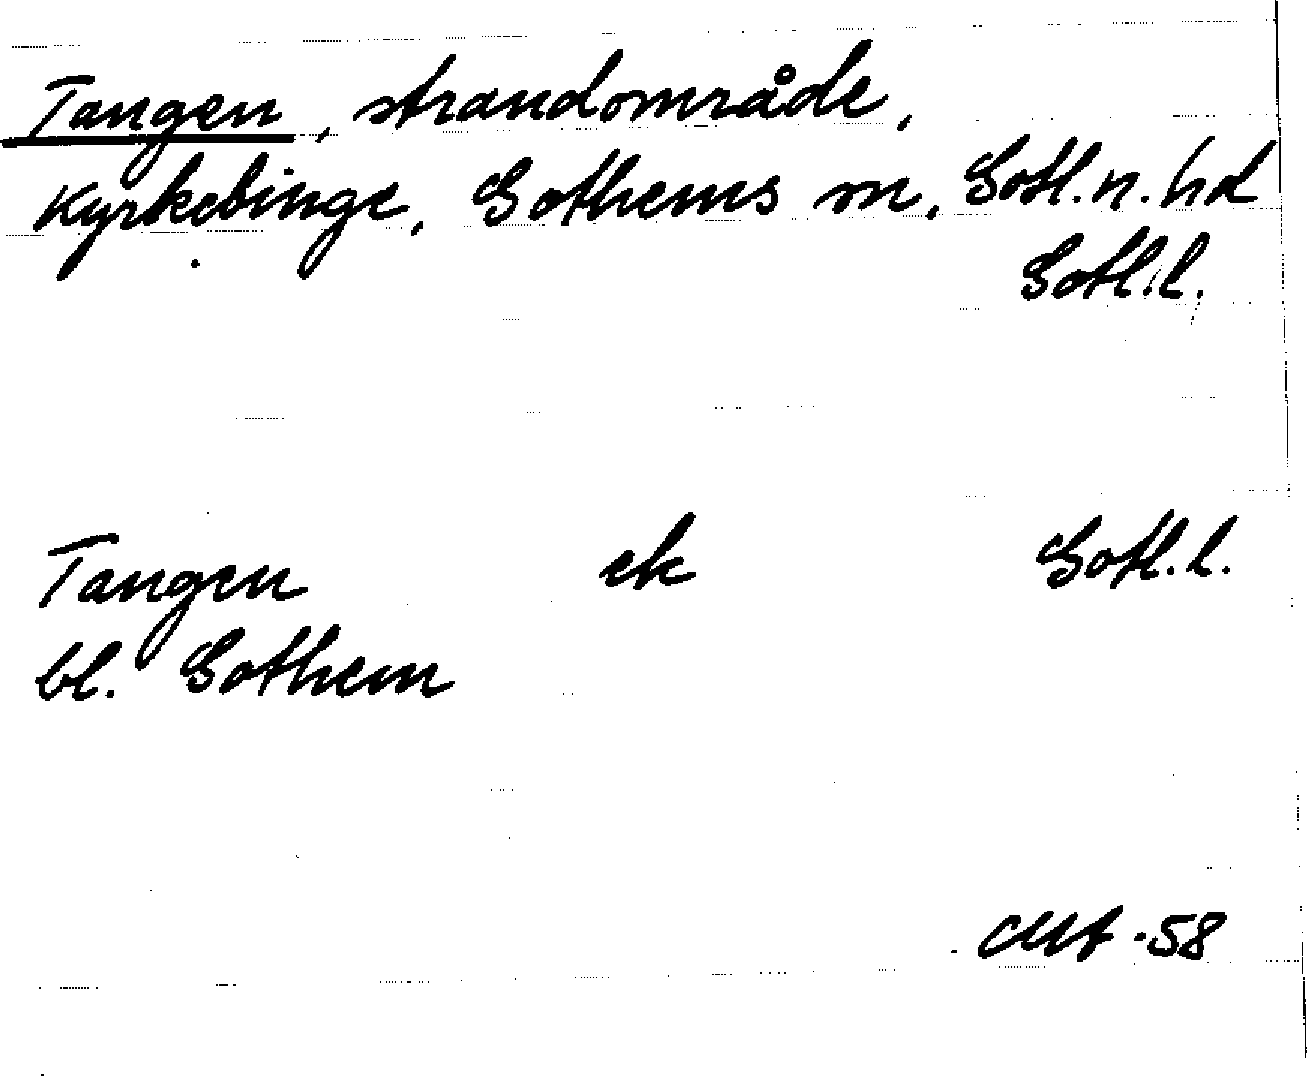 Tangen, strandområde,
Kyrkebinge, Gothems sn, Gotl. n. hd
Gotl. l.
Tangen ek Gotl. l.
bl. Gothem
-58